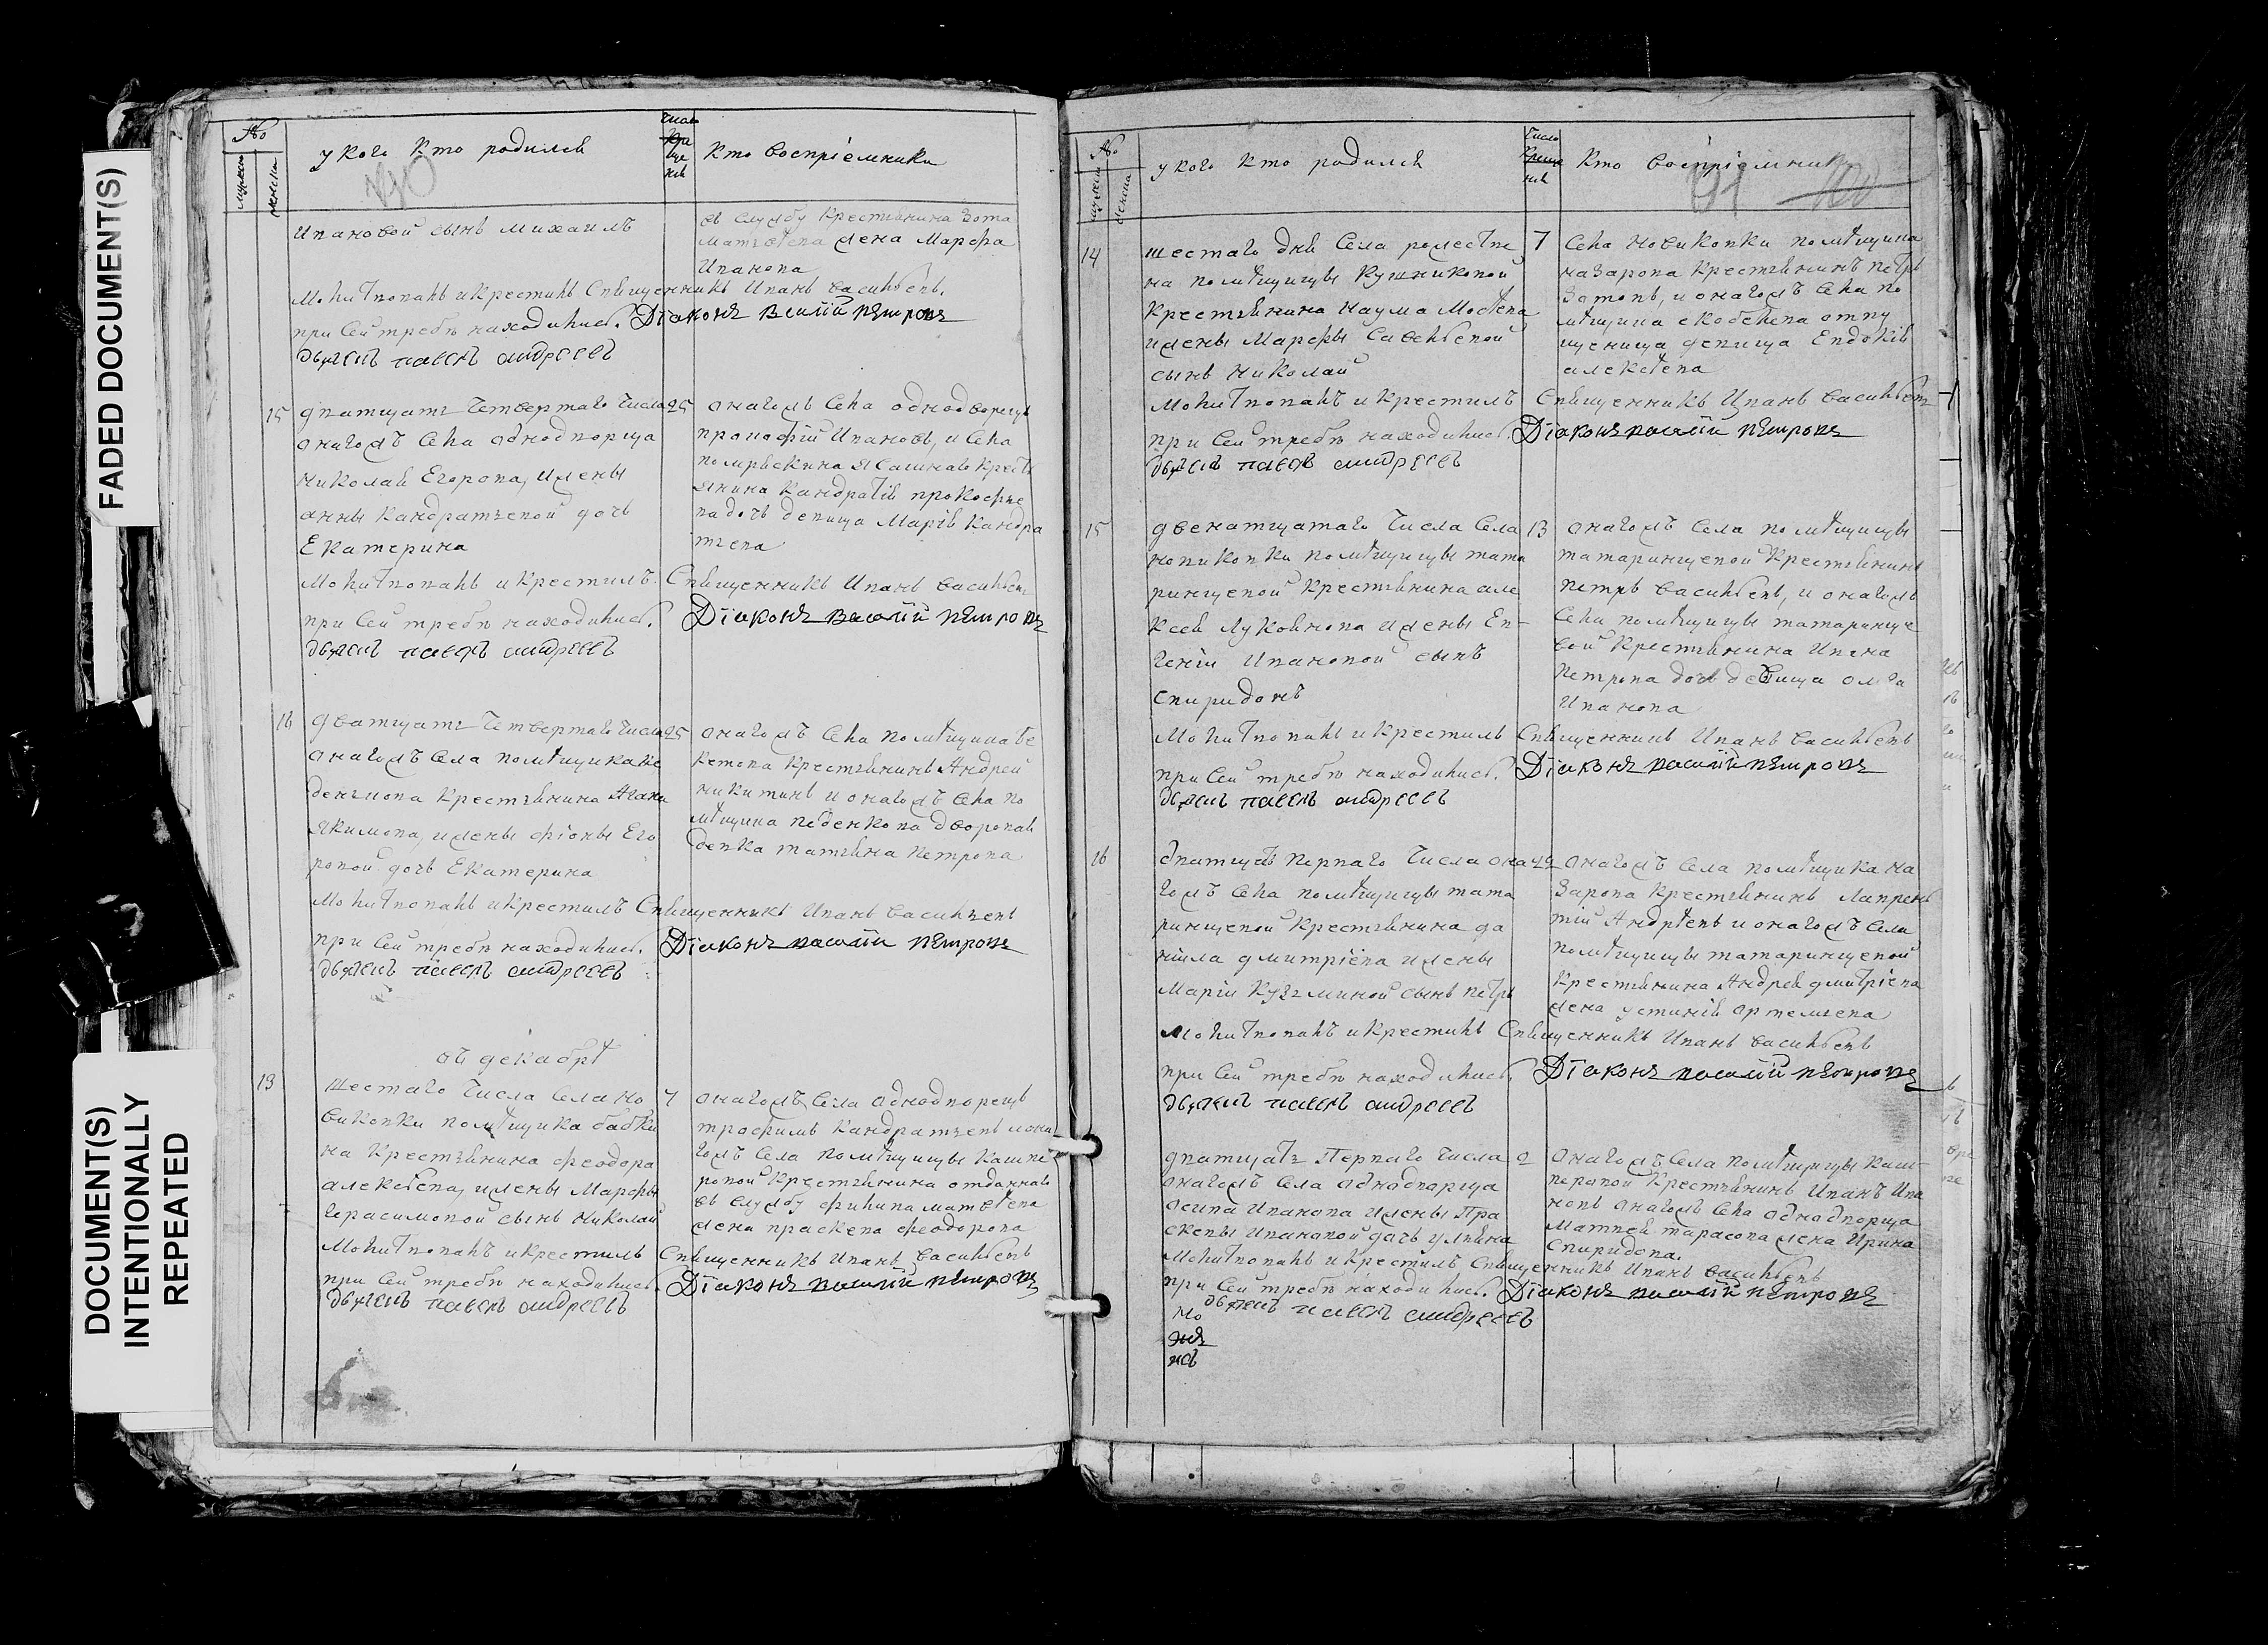 FADED DOCUMENT(S)
DOCUMENT(S)
INTENTIONALLY
REPEATED
№
мужеска
женска
у кого кто родился
число
кре
ще
нія
Кто воспріемники
Ивановой сынъ Михаилъ
въ службу Крестьянина Зота
Матвѣева жена Марфа
Иванова
Молитвовалъ и Крестилъ Священникъ Иванъ Васильевъ.
при сей требѣ находились. Діаконъ Василій Петровъ
дьячекъ Павелъ Андреевъ
15 дватцать четвертаго числа 25
онагожъ села однодворца
Николая Егорова, и жены
Анны Кандратьевой дочь
Екатерина
онагожъ села однодворецъ
Прокофій Ивановъ, и села
Кандратія Прокофье
ва дочь девица Марія Кандра
тьева
Молитвовалъ и Крестилъ. Священникъ Иванъ Васильевъ
при сей требѣ находились. Діаконъ Василій Петровъ
дьячекъ Павелъ Андреевъ
16 дватцать четвертаго числа 25
онагожъ села помѣщика Ве
деняпова Крестьянина
Якимова, и жены Фіоны Его
ровой дочь Екатерина
онагожъ села помѣщика Бе
кетова Крестьянинъ Андрей
Никитинъ и онагожъ села по
мѣщика дворовая
девка Татьяна Петрова
Молитвовалъ и Крестилъ Священникъ Иванъ Васильевъ
при сей требѣ находились. Діаконъ Василій Петровъ
дьячекъ Павелъ Андреевъ
декабрѣ
13 шестаго числа села Но 7
виковки помѣщика Бабки
на Крестьянина Феодора
Алексѣева, и жены Марфы
Герасимовой сынъ Николай
онагожъ села однодворецъ
Трофимъ Кандратьевъ и она
гожъ села помѣщицы Кашпе
ровой Крестьянина отданнаго
въ службу Филипа Матвѣева
жена Праскева Феодорова
Молитвовалъ и Крестилъ Священникъ Иванъ Васильевъ
при сей требѣ находились. Діаконъ Василій Петровъ
дьячекъ Павелъ Андреевъ
№
мужеска
женска
у кого кто родился
число
креще
нія
Кто воспріемники
91
14 шестаго дня села рожестве 7
на помѣщицы Кушниковой
Крестьянина Наума Мосѣева
и жены Марфы Савельевой
сынъ Николай
села Новиковки помѣщика
Назарова Крестьянинъ Петръ
Зотовъ, и онагожъ села по
мѣщика Скобелева отпу
щеница девица Евдокія
Алексѣева
Молитвовалъ и Крестилъ Священникъ Иванъ Васильевъ
при сей требѣ находились. Діаконъ Василій Петровъ
дьячекъ Павелъ Андреевъ
15 двенатцатаго числа села 13
Новиковки помѣщицы Тата
ринцевой Крестьянина Але
ксея Луковнова и жены Ев-
геніи Ивановой сынъ
Спиридонъ
онагожъ села помѣщицы
Татаринцевой Крестьянинъ
Петръ Васильевъ, и онагожъ
села помѣщицы Татаринце
вой Крестьянина Ивана
Петрова дочь девица Ольга
Иванова
Молитвовалъ и Крестилъ Священникъ Иванъ Васильевъ
при сей требѣ находились. Діаконъ Василій Петровъ
дьячекъ Павелъ Андреевъ
16 дватцать перваго числа она 22
гожъ села помѣщицы Тата
ринцевой Крестьянина Да
ніила Дмитріева и жены
Маріи Кузьминой сынъ Петръ
онагожъ села помѣщика На
зарова Крестьянинъ Лаврен
тій Андрѣевъ и онагожъ села
помѣщицы Татаринцевой
Крестьянина Андрея Дмитріева
жена Устинія Артемьева
Молитвовалъ и Крестилъ Священникъ Иванъ Васильевъ
при сей требѣ находились. Діаконъ Василій Петровъ
дьячекъ Павелъ Андреевъ
дватцать перваго числа
онагожъ села однодворца
Осипа Иванова и жены Пра
скевы Ивановой дочь Улияна
онагожъ села помѣщицы Каш-
перовой Крестьянинъ Иванъ Ива
новъ онагожъ села однодворца
Матвея Тарасова жена Ирина
Спиридова.
Молитвовалъ и Крестилъ Священникъ Иванъ Васильевъ
при сей требѣ находились. Діаконъ Василій Петровъ
дьячекъ Павелъ Андреевъ